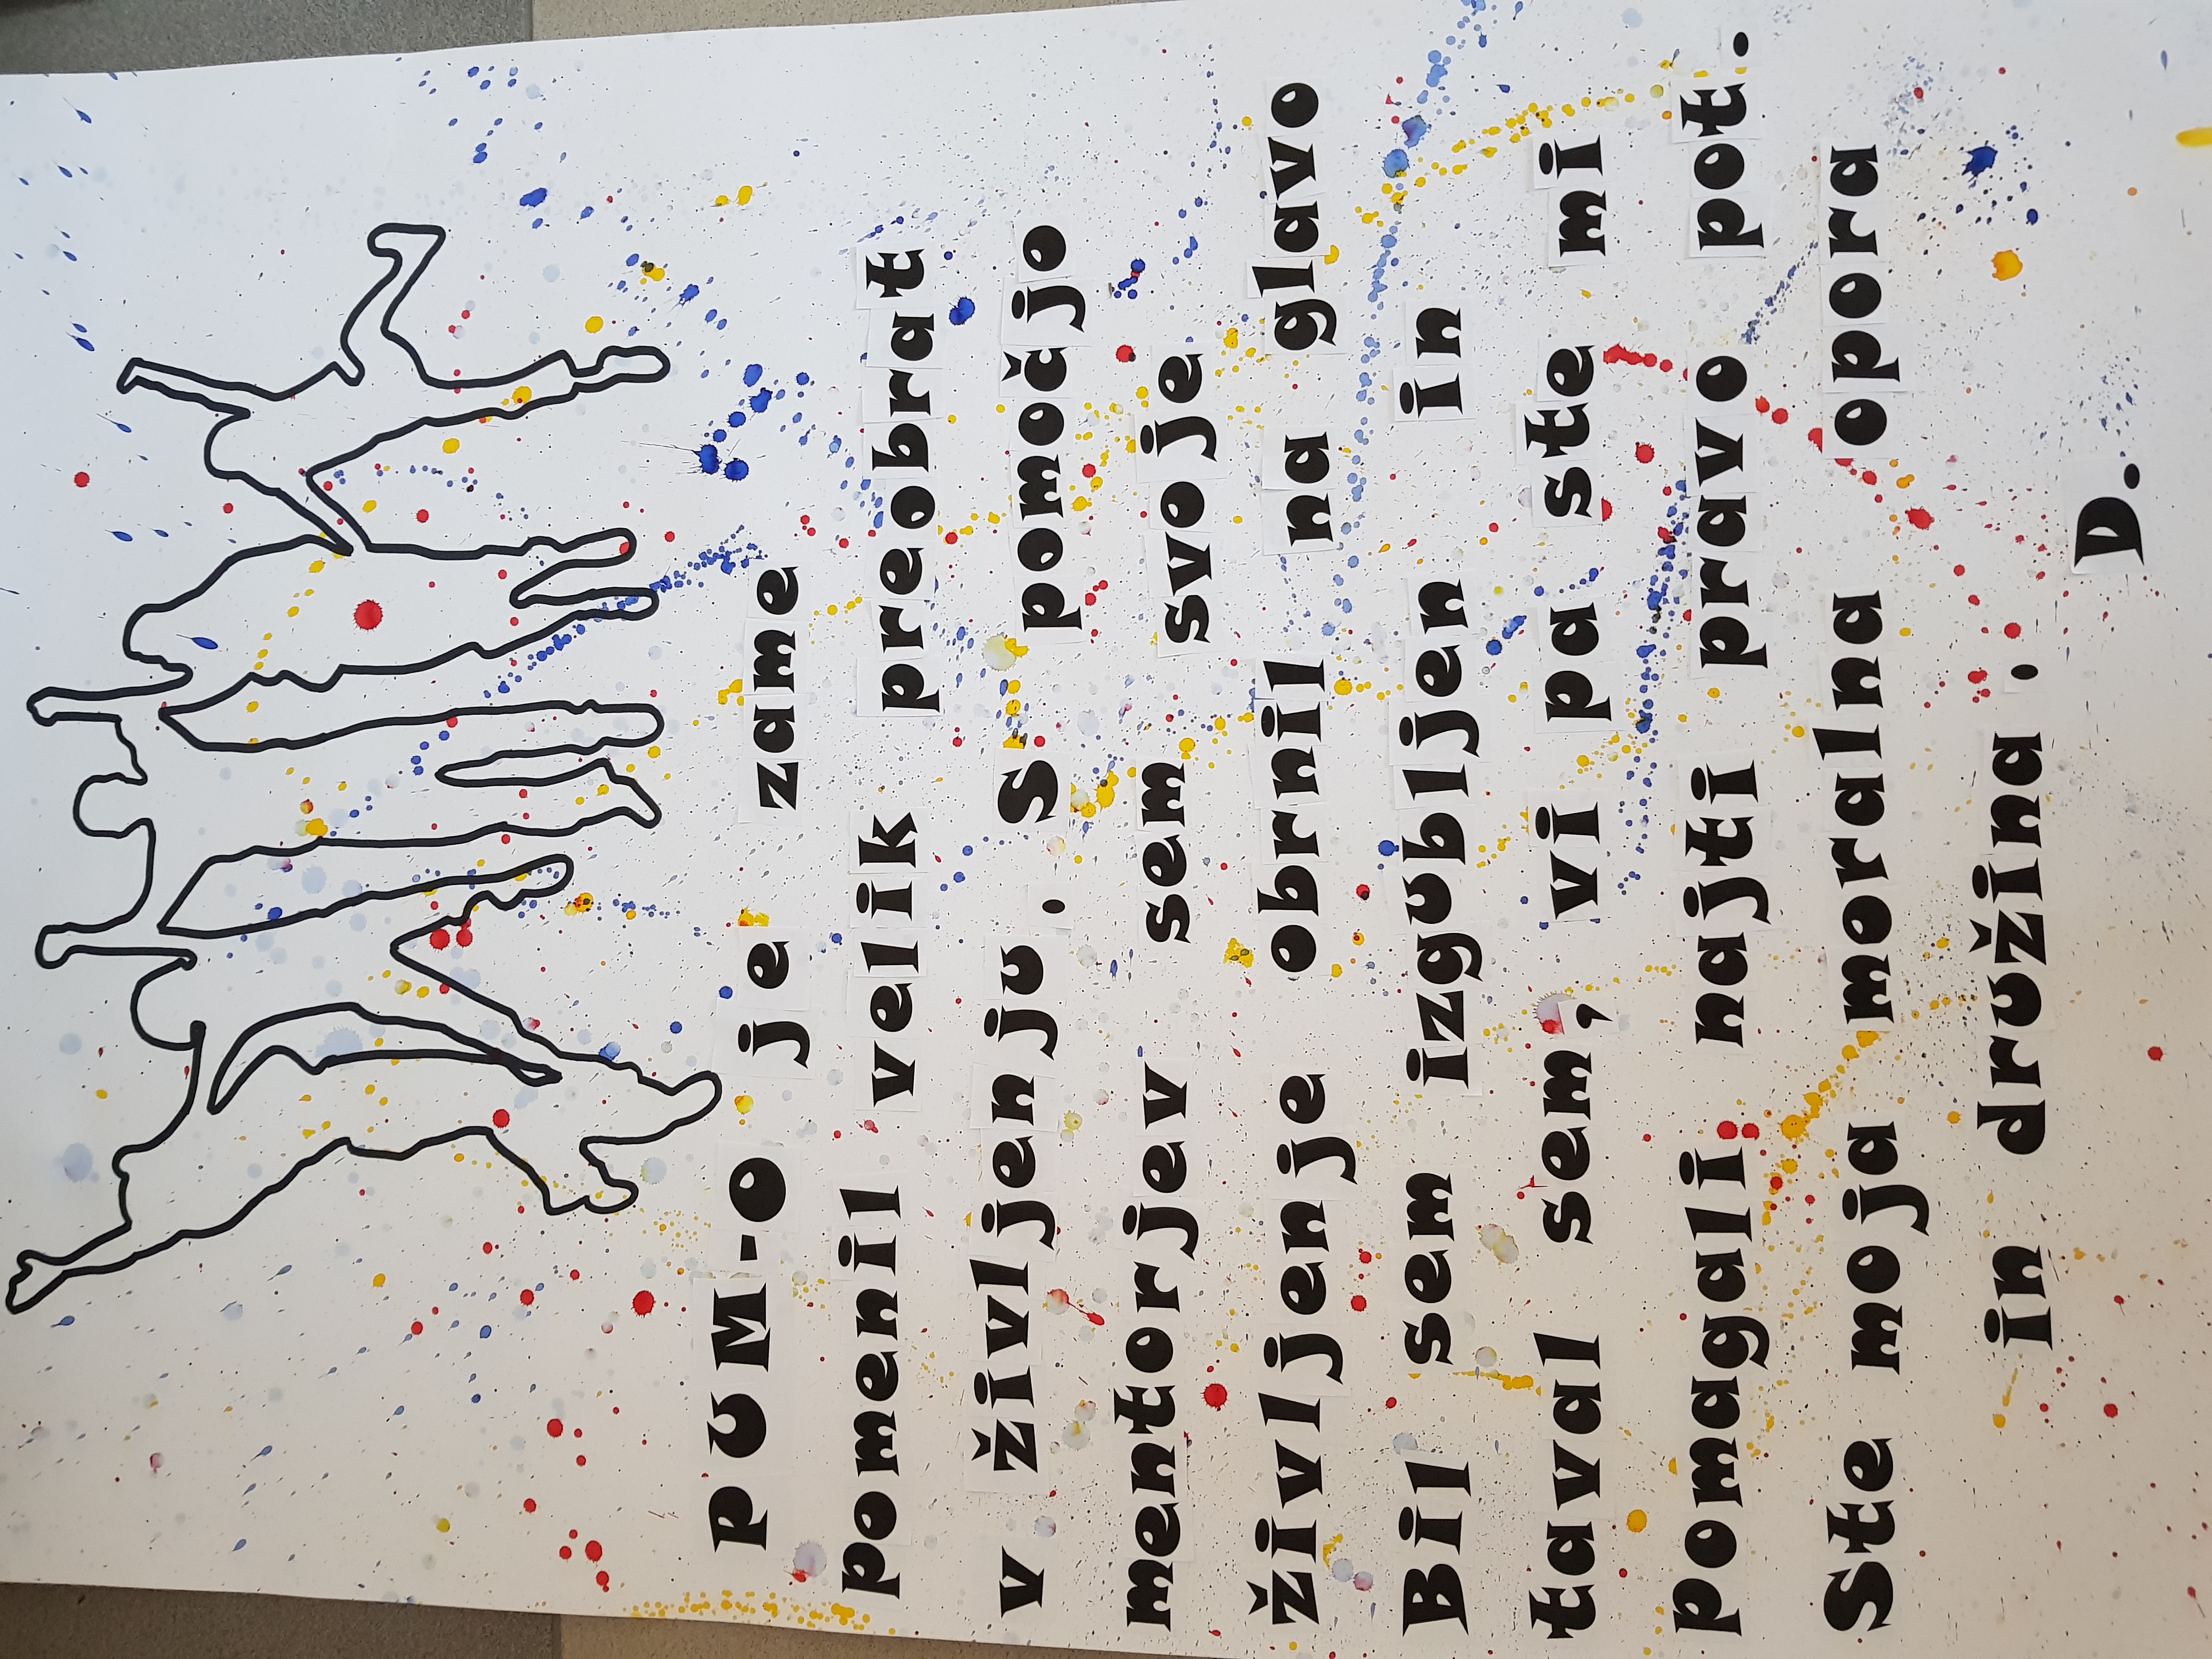 PUM-O je zame
pomenil velik preobrat
v življenju. S pomočjo
mentorjev sem svoje
življenje obrnil na glavo
Bil sem izgubljen in
taval sem, vi pa ste mi
pomagali najti pravo pot.
Ste moja moralna opora
in družina.
D.